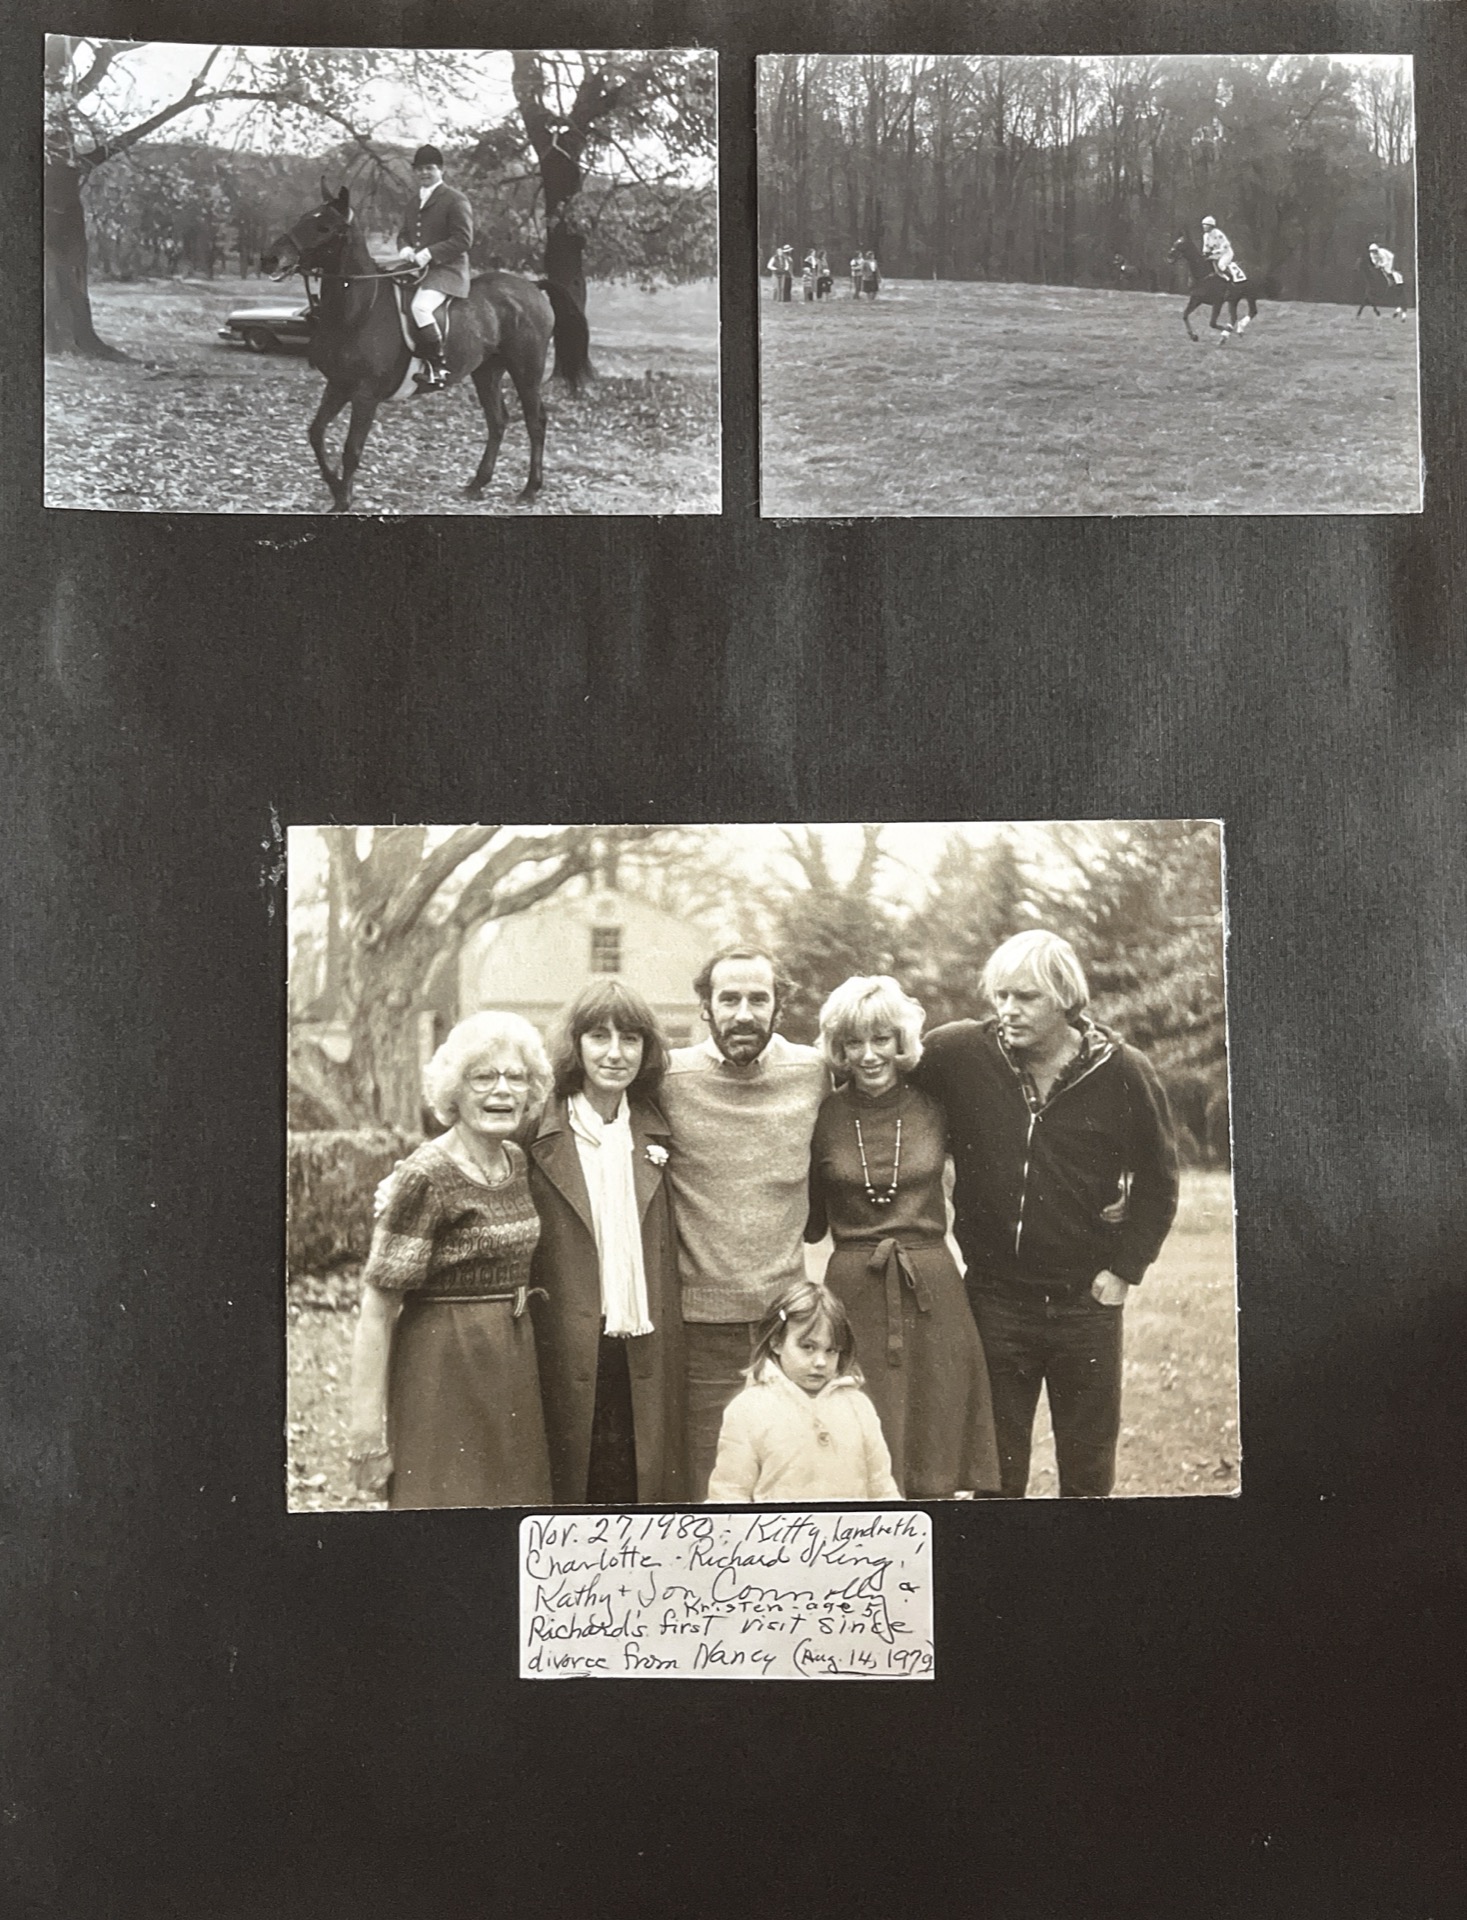 2
Nov. 27, 1980: Kitty Landreth.
Charlotte - Richard King,
Kathy + Jon Connolly &
Kristen - age 5
Richard's first visit since
divorce from Nancy (Aug. 14, 1979)